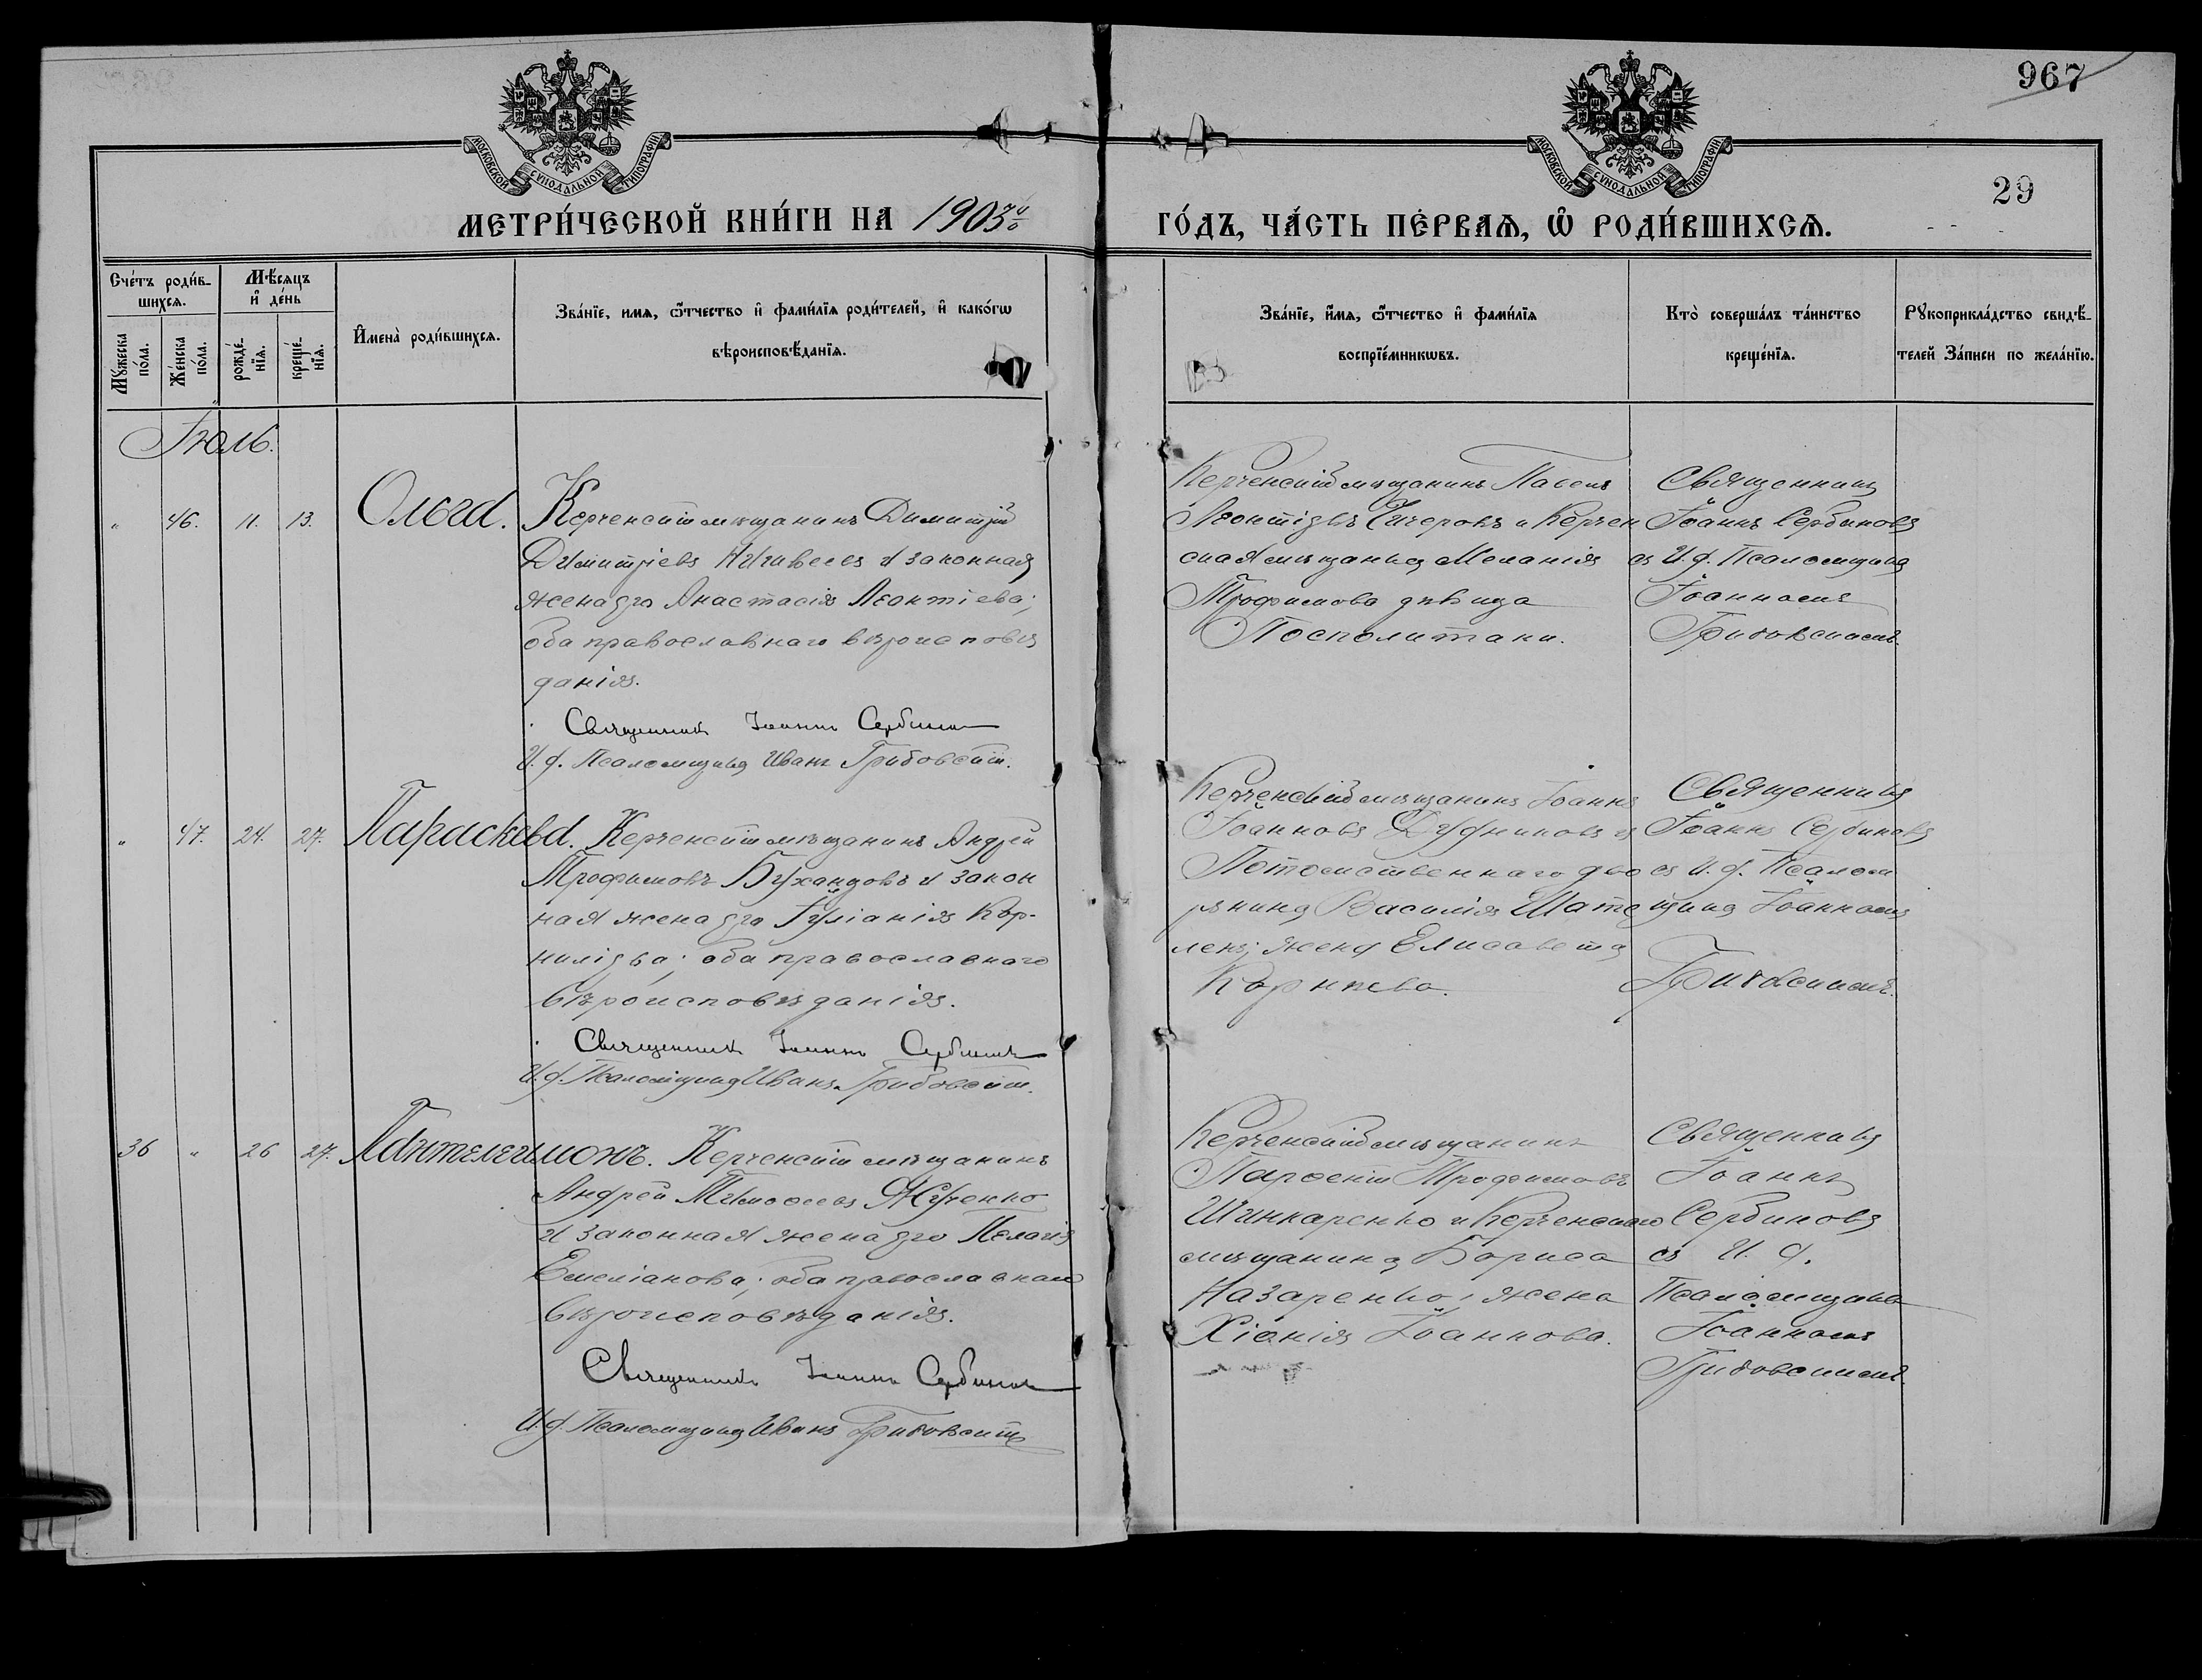 967
29
МОСКОВСКОЙ СѴНОДАЛЬНОЙ ТИПОГРАФІИ
МОСКОВСКОЙ СѴНОДАЛЬНОЙ ТИПОГРАФІИ
МЕТРИ́ЧЕСКОЙ КНИ́ГИ НА 1903й
ГО́ДЪ, ЧА́СТЬ ПЕ́РВАЯ, Ѡ РОДИ́ВШИХСЯ.
Сче́тъ роди́в-
шихся.
Мѣ́сяцъ
и де́нь
Мꙋ́жеска по́ла.
Же́нска по́ла.
рожде́-
нїя.
креще́-
нїя.
Имена̀ роди́вшихся.
Зва́нїе, имя, ѿчество и фами́лїя роди́телей, и како́гѡ
вѣроисповѣ́данїя.
Зва́нїе, и́мя, ѿчество и фами́лїя
воспрїе́мникѡвъ.
Кто̀ соверша́лъ та́инство
креще́нїя.
Рꙋкоприкла́дство свидѣ́-
телей За́писи по жела́нїю.
Іюль.
" 46. 11. 13. Ольга.
Керченскій мѣщанинъ Димитрій
Димитріевъ и законная
жена его Анастасія Леонтіева;
оба православнаго вѣроисповѣ
данія.
Священникъ Іоаннъ Сербиновъ
И. д. Псаломщика Иванъ Грибовскій.
Керченскій мѣщанинъ Павелъ
Леонтіевъ Чичеровъ и Керчен
ская мѣщанка Меланія
Трофимова дѣвица
Посполитаки.
Священникъ
Іоаннъ Сербиновъ
съ И. д. Псаломщика
Іоанномъ
Грибовскимъ.
" 47. 24. 27. Параскева.
Керченскій мѣщанинъ Андрей
Трофимовъ и закон
ная жена его Іуліанія Кор-
ниліева; оба православнаго
вѣроисповѣданія.
Священникъ Іоаннъ Сербиновъ
И. д. Псаломщика Иванъ Грибовскій.
Керченскій мѣщанинъ Іоаннъ
Іоанновъ Дудниковъ и
Потомственнаго дво
рянина Василія Шате
ленъ; жена Елисавета
Корнѣева.
Священникъ
Іоаннъ Сербиновъ
съ И. д. Псалом
щика Іоанномъ
Грибовскимъ.
36 " 26 27. Пантелеимонъ.
Керченскій мѣщанинъ
Андрей Тимоѳеевъ Жученко
и законная жена его Пелагія
Емеліанова; оба православнаго
вѣроисповѣданія.
Священникъ Іоаннъ Сербиновъ
И. д. Псаломщика Иванъ Грибовскій
Керченскій мѣщанинъ
Парѳеній Трофимовъ
Шинкаренко и Керченскаго
мѣщанина Бориса
Назаренко, жена
Хіонія Іоаннова.
Священникъ
Іоаннъ
Сербиновъ
съ И. д.
Псаломщика
Іоанномъ
Грибовскимъ.